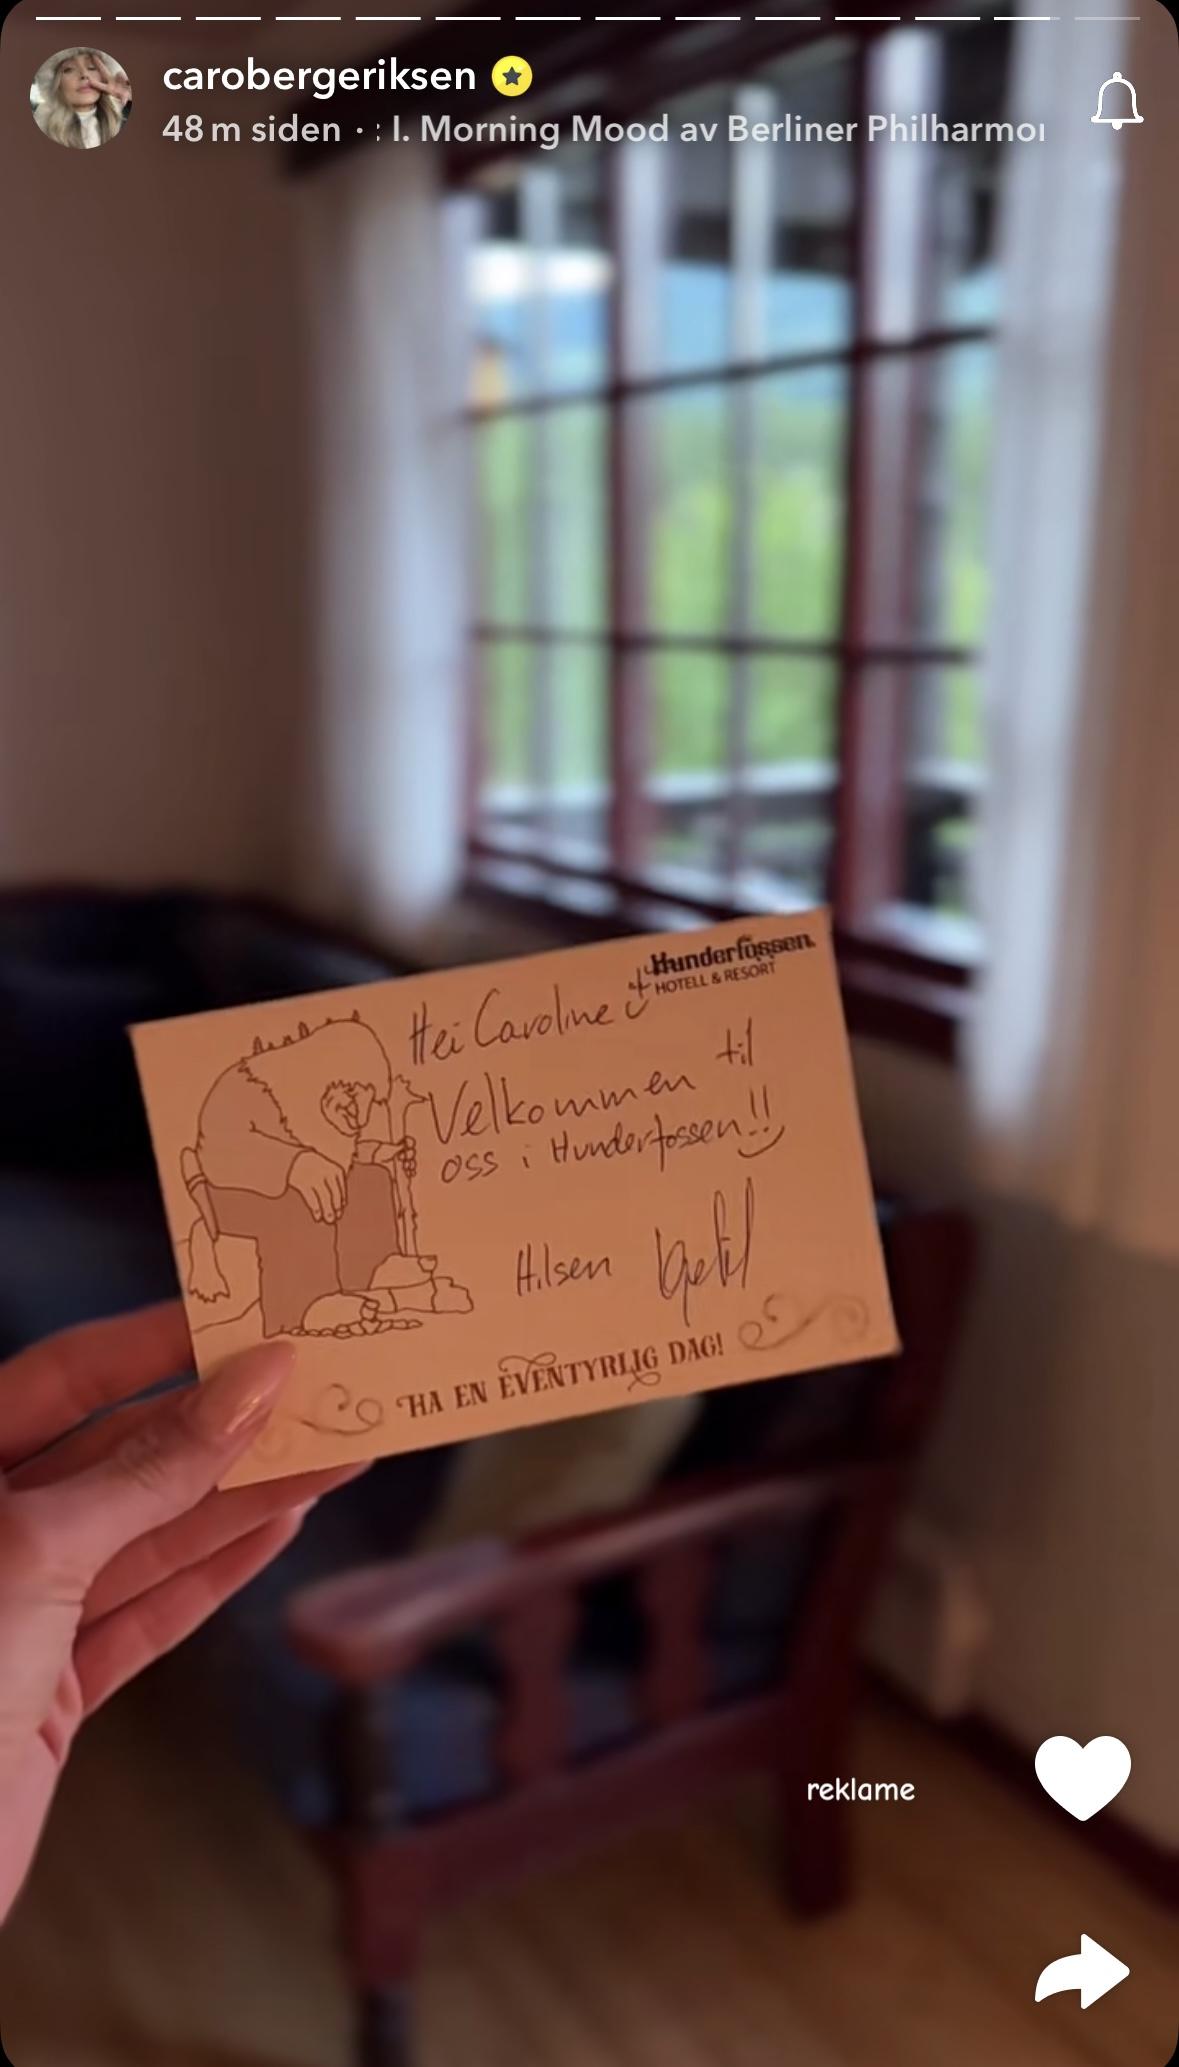 carobergeriksen
48 m siden · : I. Morning Mood av Berliner Philharmon
Hunderfossen
HOTELL & RESORT
Hei Caroline
Velkommen til
oss i Hunderfossen!!
Hilsen Kjetil
HA EN EVENTYRLIG DAG!
reklame